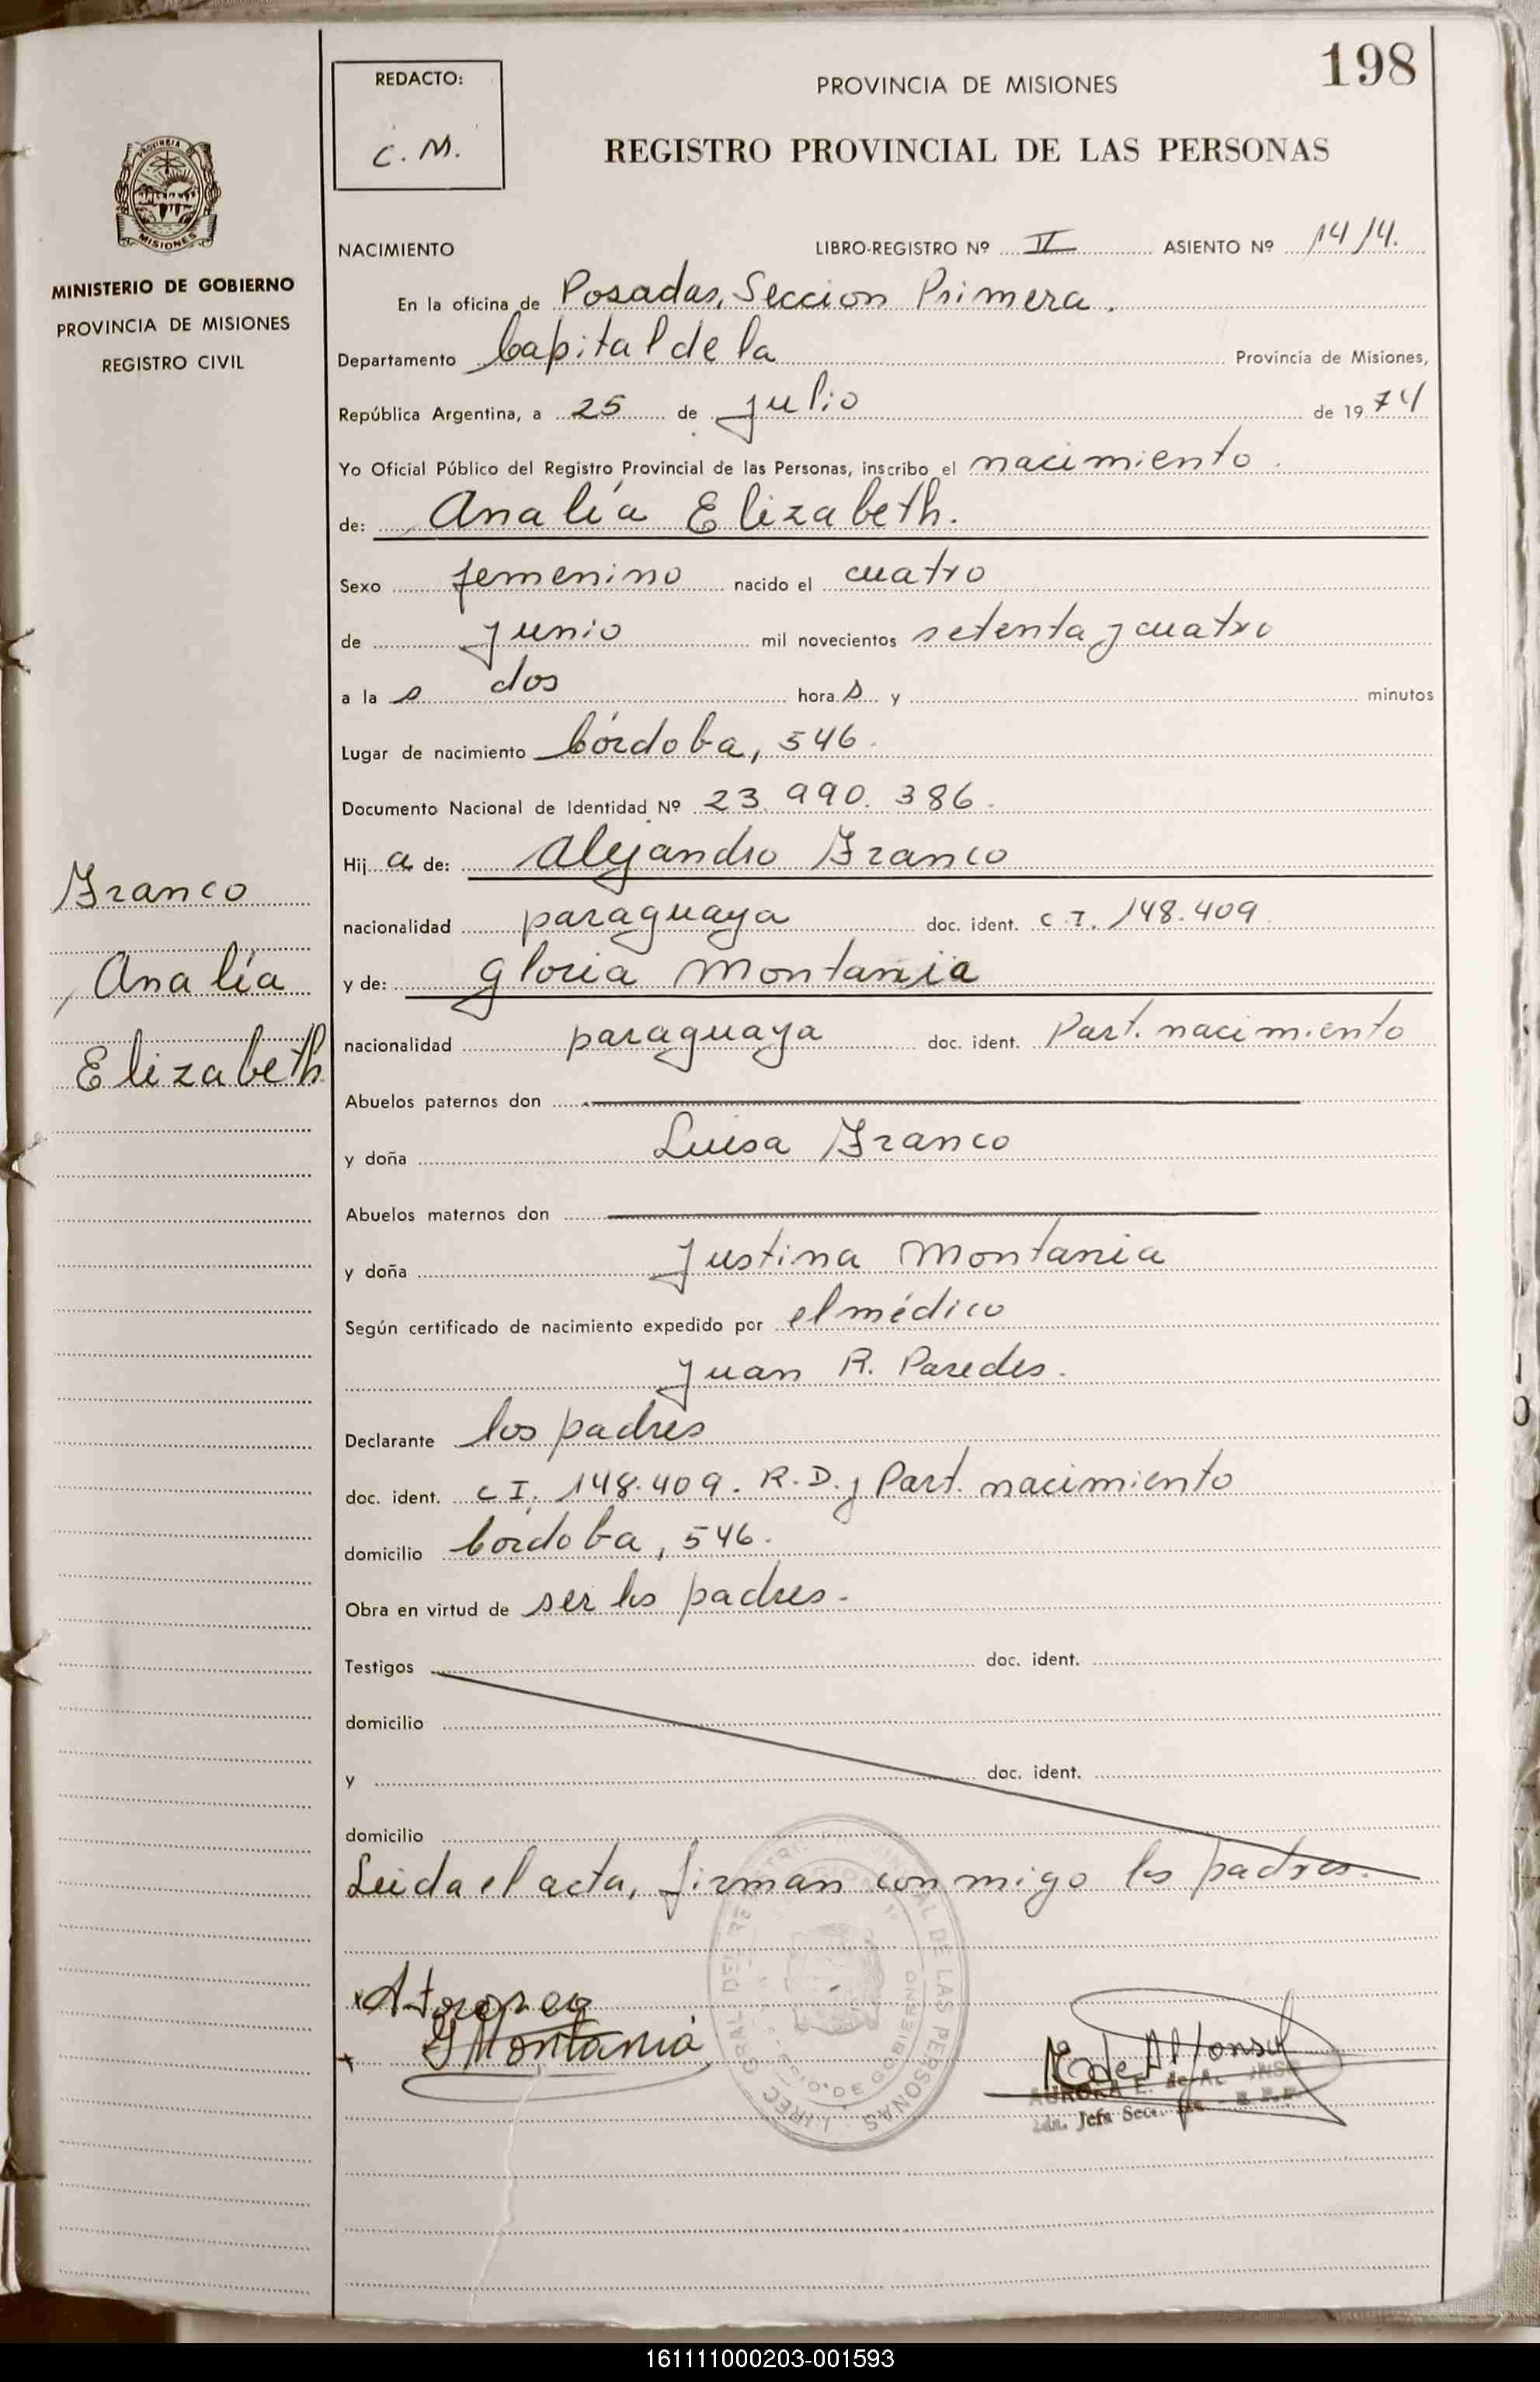 198
REDACTO:
C. M.
PROVINCIA DE MISIONES
REGISTRO PROVINCIAL DE LAS PERSONAS
PROVINCIA
MISIONES
MINISTERIO DE GOBIERNO
PROVINCIA DE MISIONES
REGISTRO CIVIL
NACIMIENTO LIBRO-REGISTRO Nº II ASIENTO Nº 1414.
En la oficina de Posadas, Seccion Primera.
Departamento Capital de la Provincia de Misiones,
República Argentina, a 25 de julio de 1974
Yo Oficial Público del Registro Provincial de las Personas, inscribo el nacimiento.
de: Analía Elizabeth.
Sexo femenino nacido el cuatro
de junio mil novecientos setenta y cuatro
a la s dos hora s y minutos
Lugar de nacimiento Córdoba, 546.
Documento Nacional de Identidad Nº 23.990.386.
Hij a de: Alejandro Franco
nacionalidad paraguaya doc. ident. C.I. 148.409.
y de: Gloria Montania
nacionalidad paraguaya doc. ident. Part. nacimiento
Franco
Analía
Elizabeth
Abuelos paternos don
y doña Luisa Franco
Abuelos maternos don
y doña Justina Montania
Según certificado de nacimiento expedido por el médico
Juan R. Paredes.
Declarante los padres
doc. ident. C I. 148.409. R.D. y Part. nacimiento
domicilio Córdoba, 546.
Obra en virtud de ser los padres.
Testigos doc. ident.
domicilio
y doc. ident.
domicilio
Leida el acta, firman conmigo los padres.
G Montania
E de Alfonso
AURORA E. de
Jefa Secc.
DE LAS PERSONAS
DE GOBIERNO
161111000203-001593